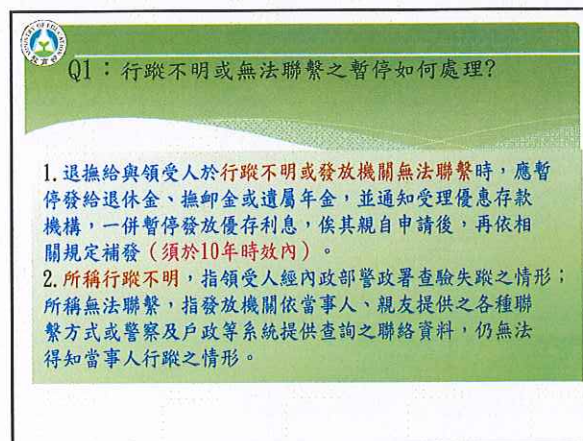 MINISTRY OF EDUCATION
教育部
Q1：行蹤不明或無法聯繫之暫停如何處理?
1.退撫給與領受人於行蹤不明或發放機關無法聯繫時，應暫
停發給退休金、撫卹金或遺屬年金，並通知受理優惠存款
機構，一併暫停發放優存利息，俟其親自申請後，再依相
關規定補發（須於10年時效內）。
2.所稱行蹤不明，指領受人經內政部警政署查驗失蹤之情形；
所稱無法聯繫，指發放機關依當事人、親友提供之各種聯
繫方式或警察及戶政等系統提供查詢之聯絡資料，仍無法
得知當事人行蹤之情形。